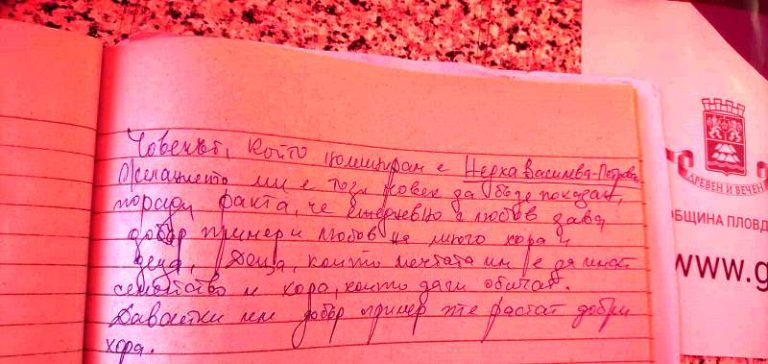 Човекът, който номинирам е Недка Василева-Петрова
Желанието ми е този човек да бъде показан,
поради факта, че ежедневно с любов дава
добър пример и любов на много хора и
деца. Деца, които мечтата им е да имат
семейство и хора, които да ги обичат.
Давайки им добър пример те растат добри
хора.
ДРЕВЕН И ВЕЧЕН
ОБЩИНА ПЛОВД
www.g